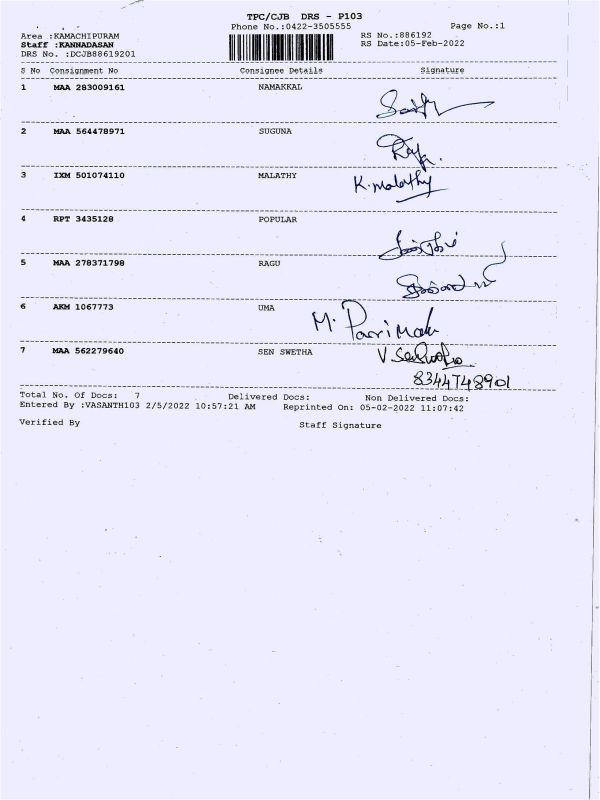 TPC/CJB DRS - P103
Phone No.:0422-3505555 Page No.:1
Area :KAMACHIPURAM RS No.:886192
Staff :KANNADASAN RS Date:05-Feb-2022
DRS No. :DCJB88619201
S No Consignment No Consignee Details Signature
1 MAA 283009161 NAMAKKAL
2 MAA 564478971 SUGUNA
3 IXM 501074110 MALATHY K. malathy
4 RPT 3435128 POPULAR
5 MAA 278371798 RAGU
6 AKM 1067773 UMA M.
7 MAA 562279640 SEN SWETHA
8344748901
Total No. Of Docs: 7 Delivered Docs: Non Delivered Docs:
Entered By :VASANTH103 2/5/2022 10:57:21 AM Reprinted On: 05-02-2022 11:07:42
Verified By Staff Signature